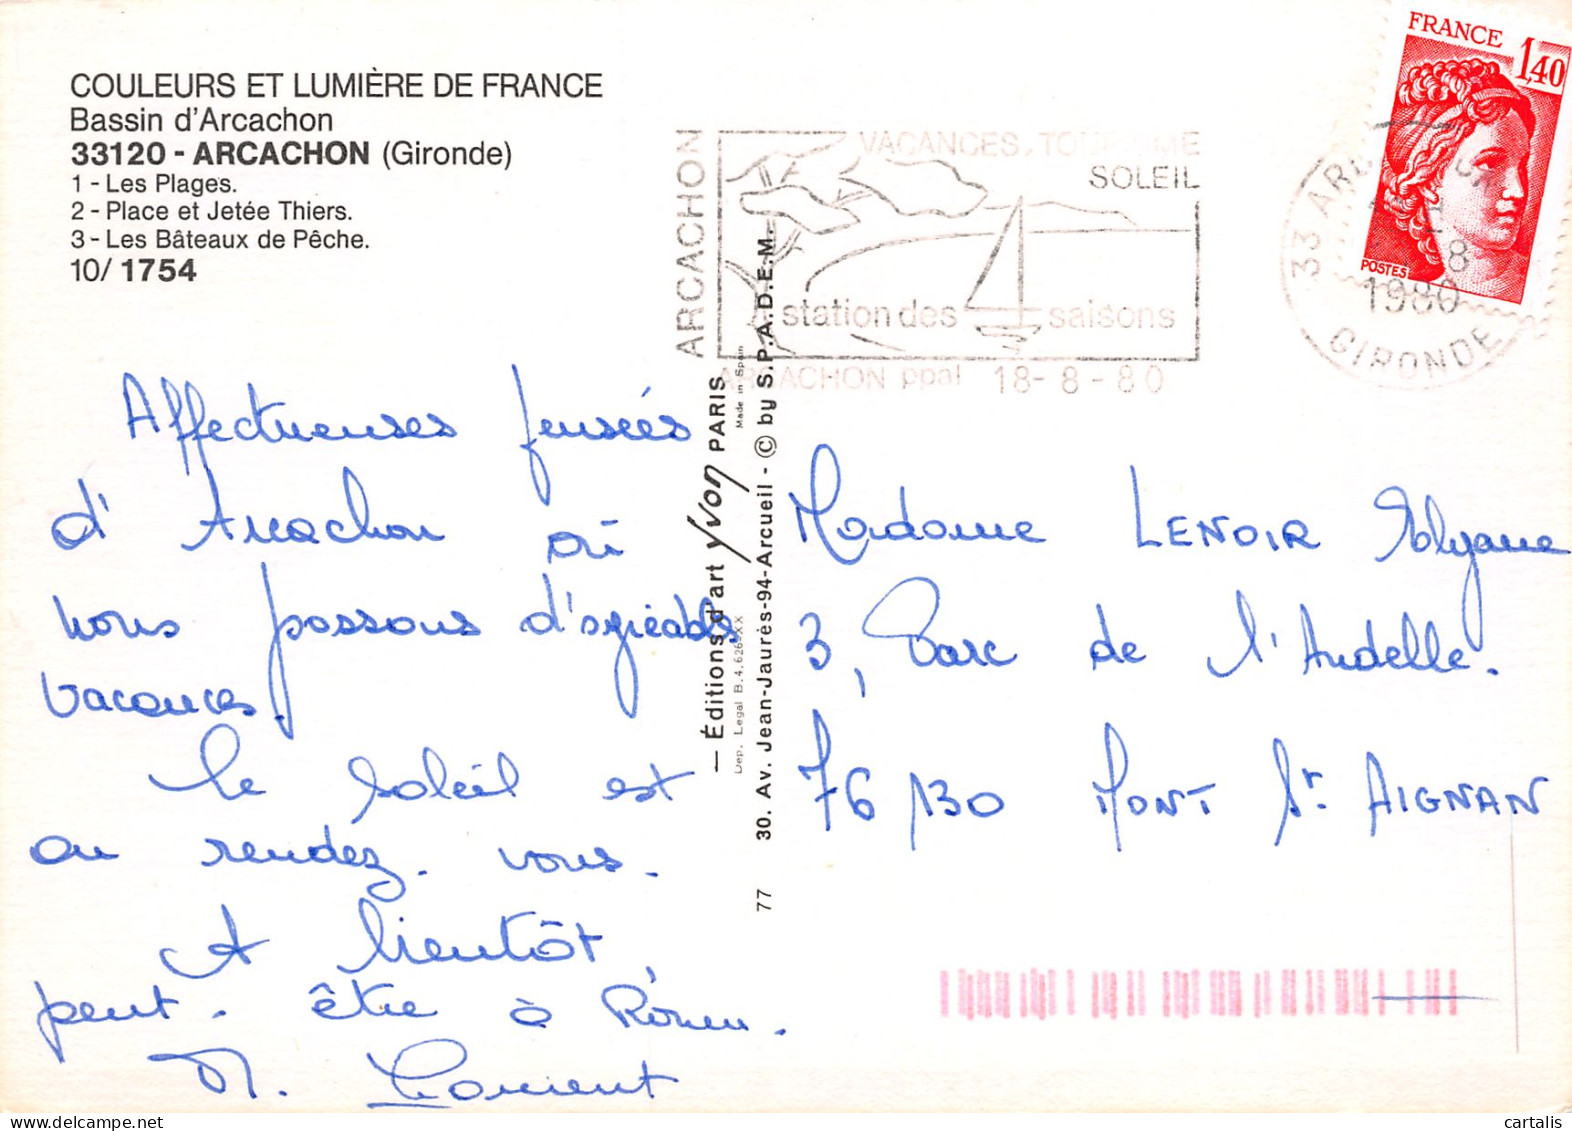 COULEURS ET LUMIÈRE DE FRANCE
Bassin d'Arcachon
33120 - ARCACHON (Gironde)
1 - Les Plages.
2 - Place et Jetée Thiers.
3 - Les Bâteaux de Pêche.
10/ 1754
Affectueuses pensées
d'Arcachon où
nous passons d'agréables
vacances.
Le soleil est
au rendez-vous.
A bientôt
peut-être à Rouen.
M. Laurent
— Éditions d'art Yvon PARIS
Made in Spain
Dep. Legal B. 4.626-XX
77 30. Av. Jean-Jaurès-94-Arcueil - © by S.P.A.D.E.M.
ARCACHON
VACANCES, TOURISME
SOLEIL
station des saisons
ARCACHON ppal 18-8-80
FRANCE
1,40
POSTES
33 ARCACHON
8
1980
GIRONDE
Madame LENOIR Elyane
3, Parc de l'Andelle.
76130 MONT St AIGNAN
cartalis